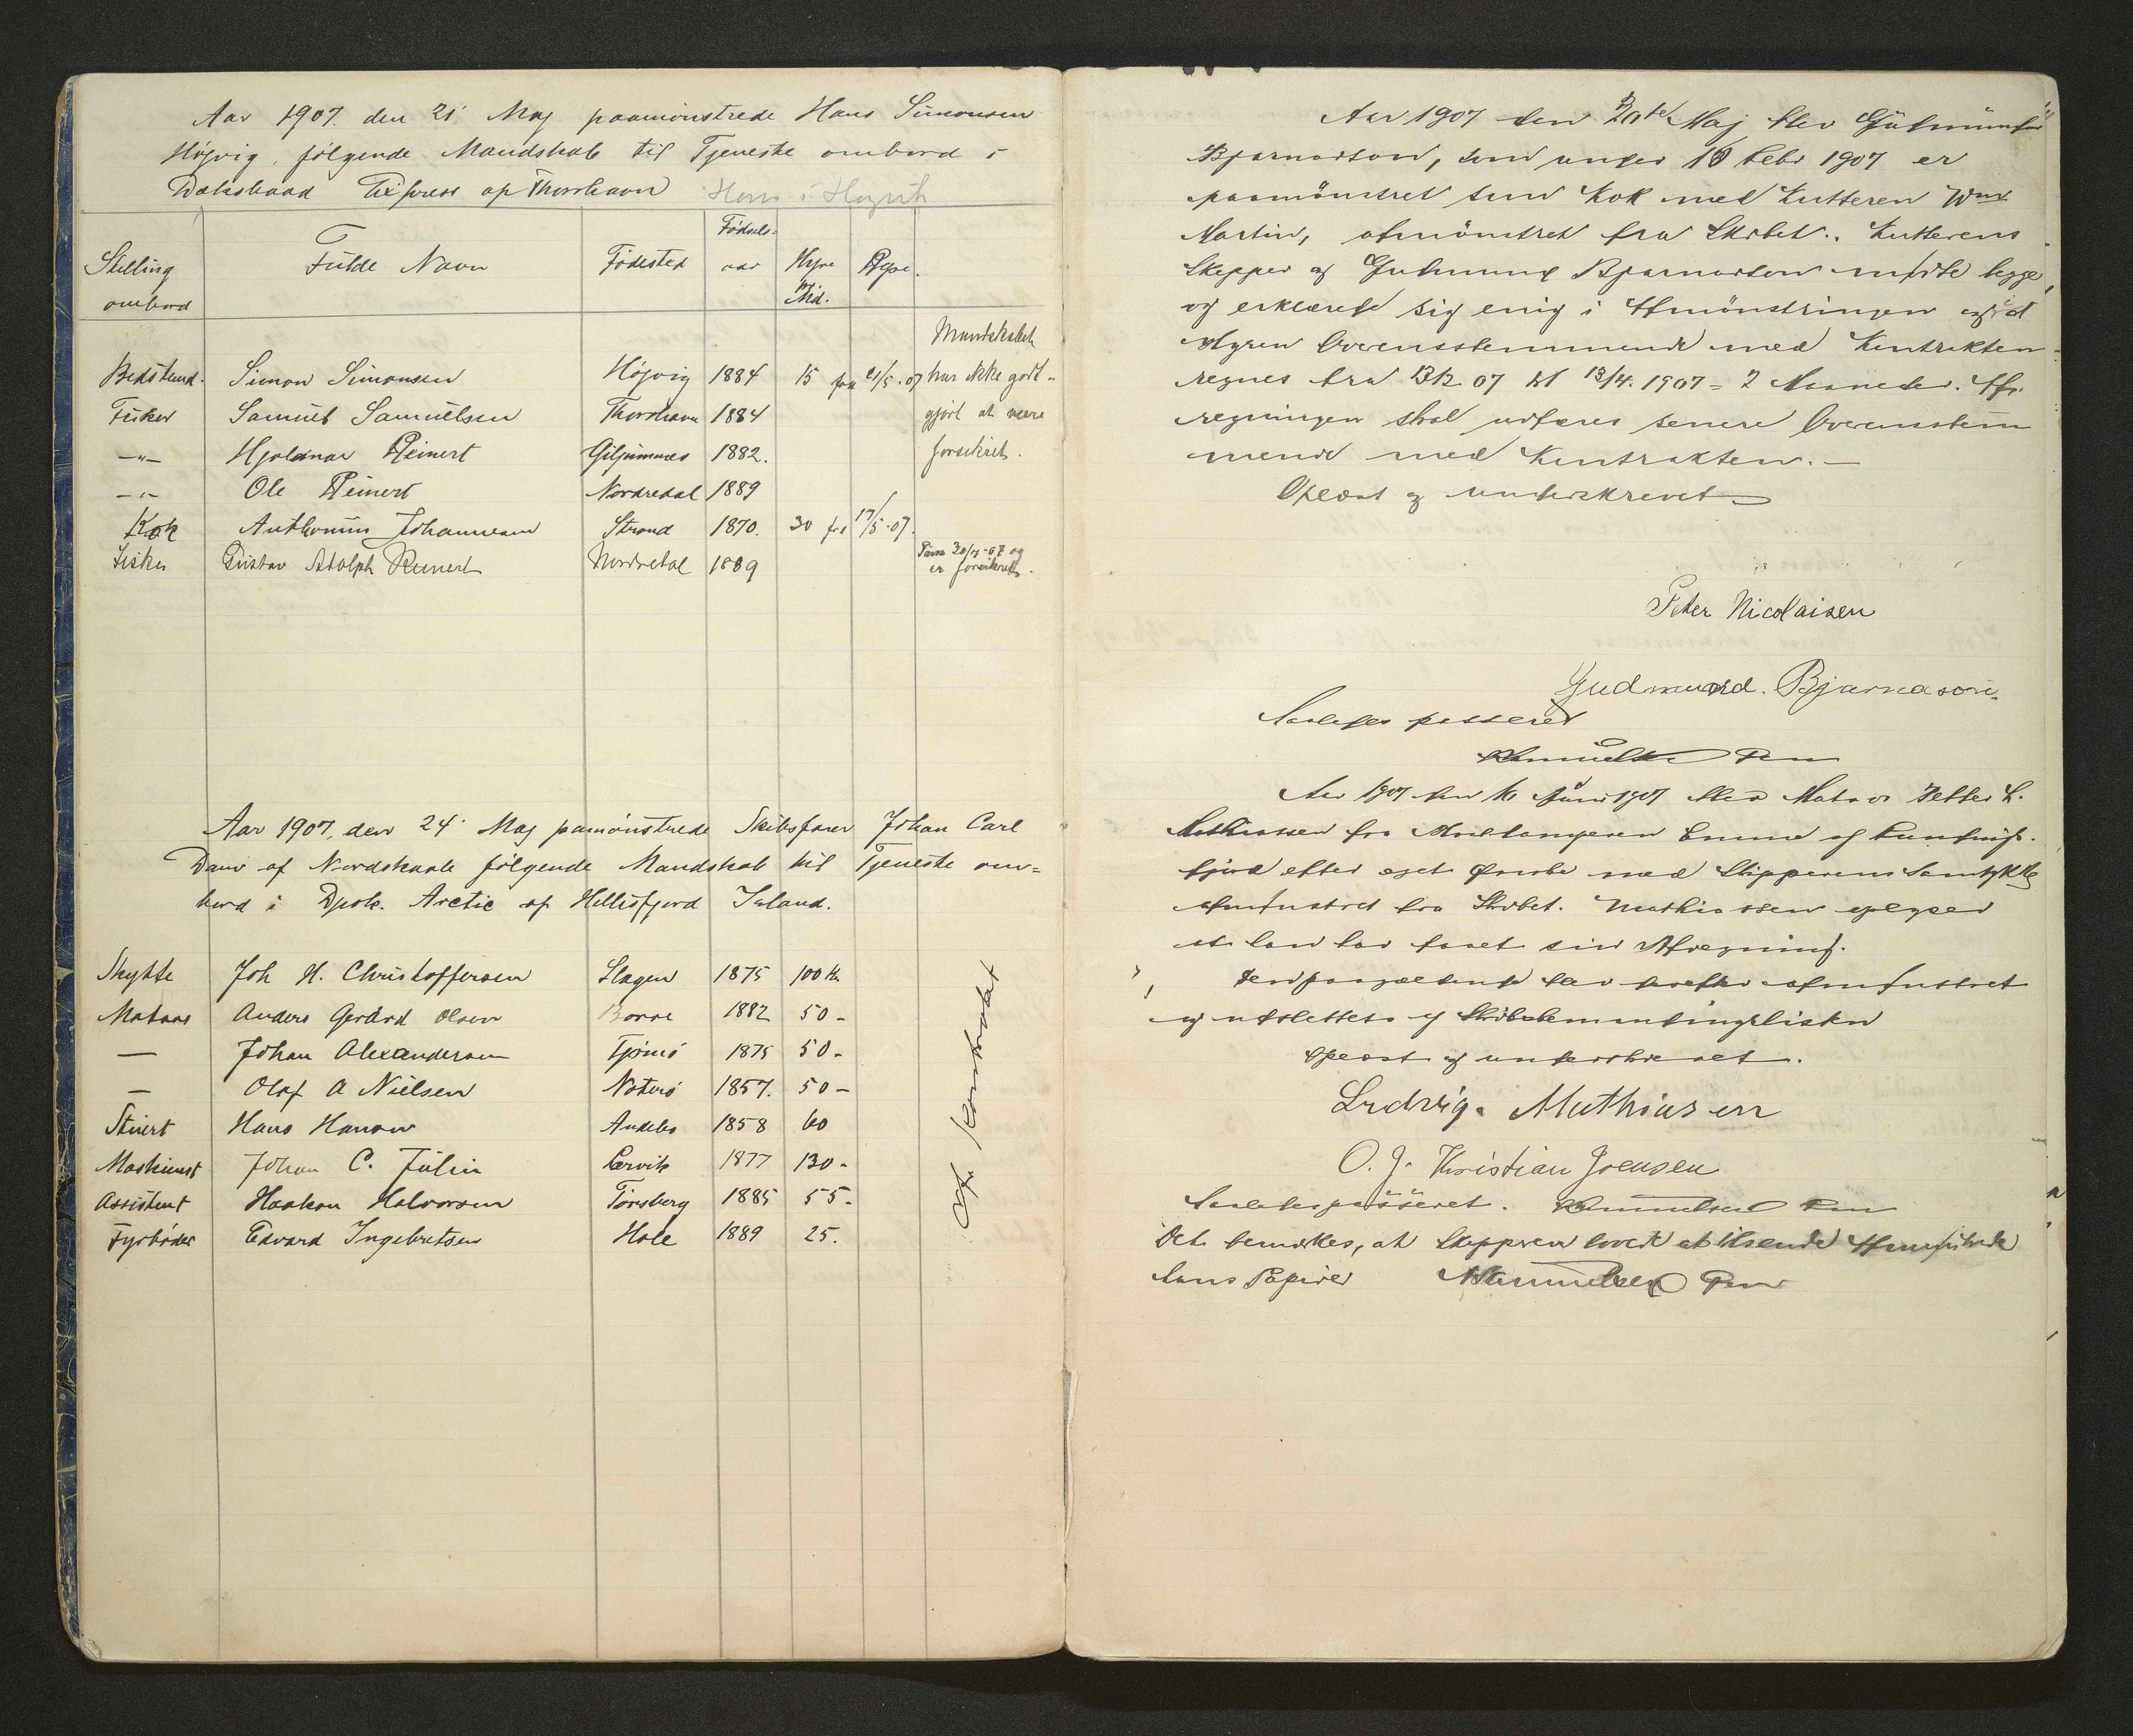 Aar 1907. den 21' Maj paamönstrede Hans Simonsen
Höjvig, fölgende Mandskab til Tjeneste ombord i
Dæksbaad Express af Thorshavn Hans i Höjvik
Stilling ombord Fulde Navn Födested Födsels- aar Hyre pr. Md. Hyre.
Bedstmd. Simon Simonsen Höjvig 1884 15 fra 21/5.07
Mandskabet
har ikke godt-
gjort at være
forsikret.
Fisker Samuel Samuelsen Thorshavn 1884
—"— Hjalmar Reinert Giljumnæs 1882.
—"— Ole Reinert Nordredal 1889
Kok Anthonius Johannesen Strand 1870. 30 fra 17/5.07.
Fisker Gustav Adolph Reinert Nordredal 1889
er forsikret.
Aar 1907, den 24' Maj pamönstrede Skibsförer Johan Carl
Dam af Nordskaale fölgende Mandskab til Tjeneste om=
bord i Dpsk. Arctic af Hellisfjord Island.
Skytte Joh H. Christoffersen Slagen 1875 100 Kr
Matros Anders Gerhard Olsen Borre 1882 50-
— Johan Alexandersen Tjömö 1875 50-
— Olaf A Nielsen Nöterö 1857. 50-
Stuert Hans Hansen Andebo 1858 60
Maskinist Johan C. Julin Larvik 1877 130-
Assistent Haakon Halvorsen Tönsberg 1885 55-
Fyrböder Edvard Ingebretsen Hole 1889 25.
Kontrakt
Aar 1907 den 20de Maj blev Gudmundur
Bjarnason, som under 18 Febr 1907 er
paamönstret som Kok med Kutteren Wm
Martin, afmönstret fra Skibet. Kutterens
Skipper og Gudmund Bjarnason mödte begge
og erklærede sig enig i Afmönstringen og at
Hyren Overensstemmende med Kontrakten
regnes fra 13/2 07 til 13/4. 1907 = 2 Maaneder. Af-
regningen skal udföres senere Overensstem
mende med Kontrakten.—
Oplæst og underskrevet
Peter Nicolaisen
Gudmund. Bjarnason.
Saaledes passeret
Aar 1907 den Juni 1907 blev Matros Petter L.
Mathiassen fra Hvalfangeren Emma af
fjord efter eget Önske med Skipperens Samtykke
afmönstret fra Skibet. Mathiassen oplyser
at han har faaet sin Afregning.
Vedpaagældende har derefter afmönstret
og udslettets af Skibsbemandingslisten
Oplæst og underskrevet.
Ludvig. Mathiasen
O. J. Kristian Joensen
Saaledes passeret.
Det bemærkes, at Skipperen lovede at tilsende Afmönstrede
hans Papirer